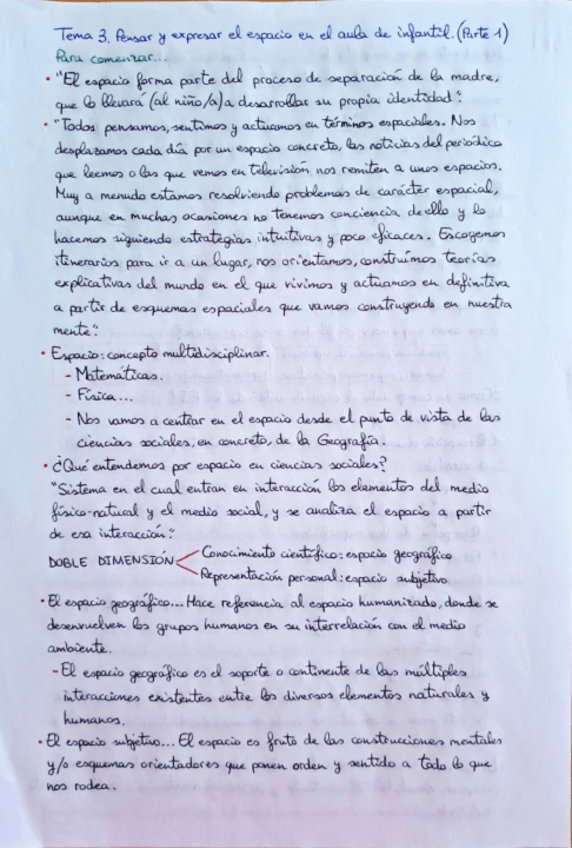 Tema 3. Pensar y expresar el espacio en el aula de infantil. (Parte 1)
Para comenzar...
• "El espacio forma parte del proceso de separación de la madre,
que lo llevará (al niño/a) a desarrollar su propia identidad".
• "Todos pensamos, sentimos y actuamos en términos espaciales. Nos
desplazamos cada día por un espacio concreto, las noticias del periódico
que leemos o las que vemos en televisión nos remiten a unos espacios.
Muy a menudo estamos resolviendo problemas de carácter espacial,
aunque en muchas ocasiones no tenemos conciencia de ello y lo
hacemos siguiendo estrategias intuitivas y poco eficaces. Escogemos
itinerarios para ir a un lugar, nos orientamos, construimos teorías
explicativas del mundo en el que vivimos y actuamos en definitiva
a partir de esquemas espaciales que vamos construyendo en nuestra
mente".
• Espacio: concepto multidisciplinar.
- Matemáticas.
- Física...
- Nos vamos a centrar en el espacio desde el punto de vista de las
ciencias sociales, en concreto, de la Geografía.
• ¿Qué entendemos por espacio en ciencias sociales?
"Sistema en el cual entran en interacción los elementos del medio
físico-natural y el medio social, y se analiza el espacio a partir
de esa interacción".
DOBLE DIMENSIÓN
Conocimiento científico: espacio geográfico
Representación personal: espacio subjetivo
• El espacio geográfico... Hace referencia al espacio humanizado, donde se
desenvuelven los grupos humanos en su interrelación con el medio
ambiente.
- El espacio geográfico es el soporte o continente de las múltiples
interacciones existentes entre los diversos elementos naturales y
humanos.
• El espacio subjetivo... El espacio es fruto de las construcciones mentales
y/o esquemas orientadores que ponen orden y sentido a todo lo que
nos rodea.